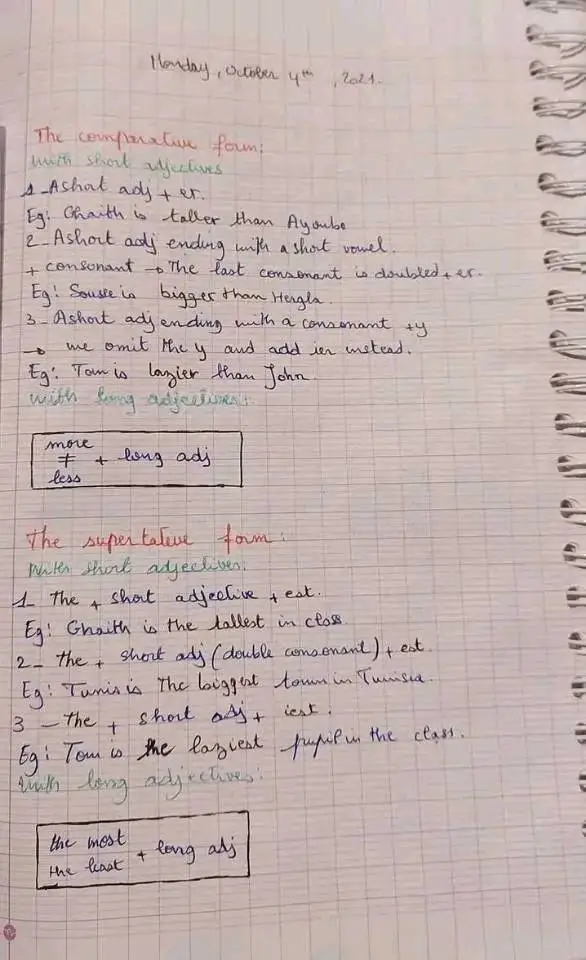 Monday, October 4th, 2021.
The comparative form:
With short adjectives
1_A short adj + er.
Eg: Ghaith is taller than Ayoube
2_A short adj ending with a short vowel.
+ consonant → The last consonant is doubled + er.
Eg: Sousse is bigger than Hergla.
3_A short adj ending with a consonant +y
→ we omit the y and add ier instead.
Eg: Tom is lazier than John.
With long adjectives:
more
≠ + long adj
less
The superlative form:
With short adjectives:
1_ The + short adjective + est.
Eg: Ghaith is the tallest in class.
2_ the + short adj (double consonant) + est.
Eg: Tunis is The biggest town in Tunisia.
3 _ the + short adj + iest.
Eg: Tom is the laziest pupil in the class.
With long adjectives:
the most
the least + long adj